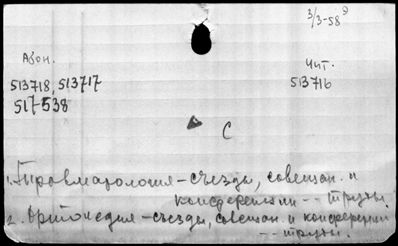 3/3-58 г
Абон.
Чит.
513718, 513717
513716
517538
С
1. Травматология - съезды, совещан. и
конференции -- труды.
2. Ортопедия - съезды, совещан. и конференции
-- труды.